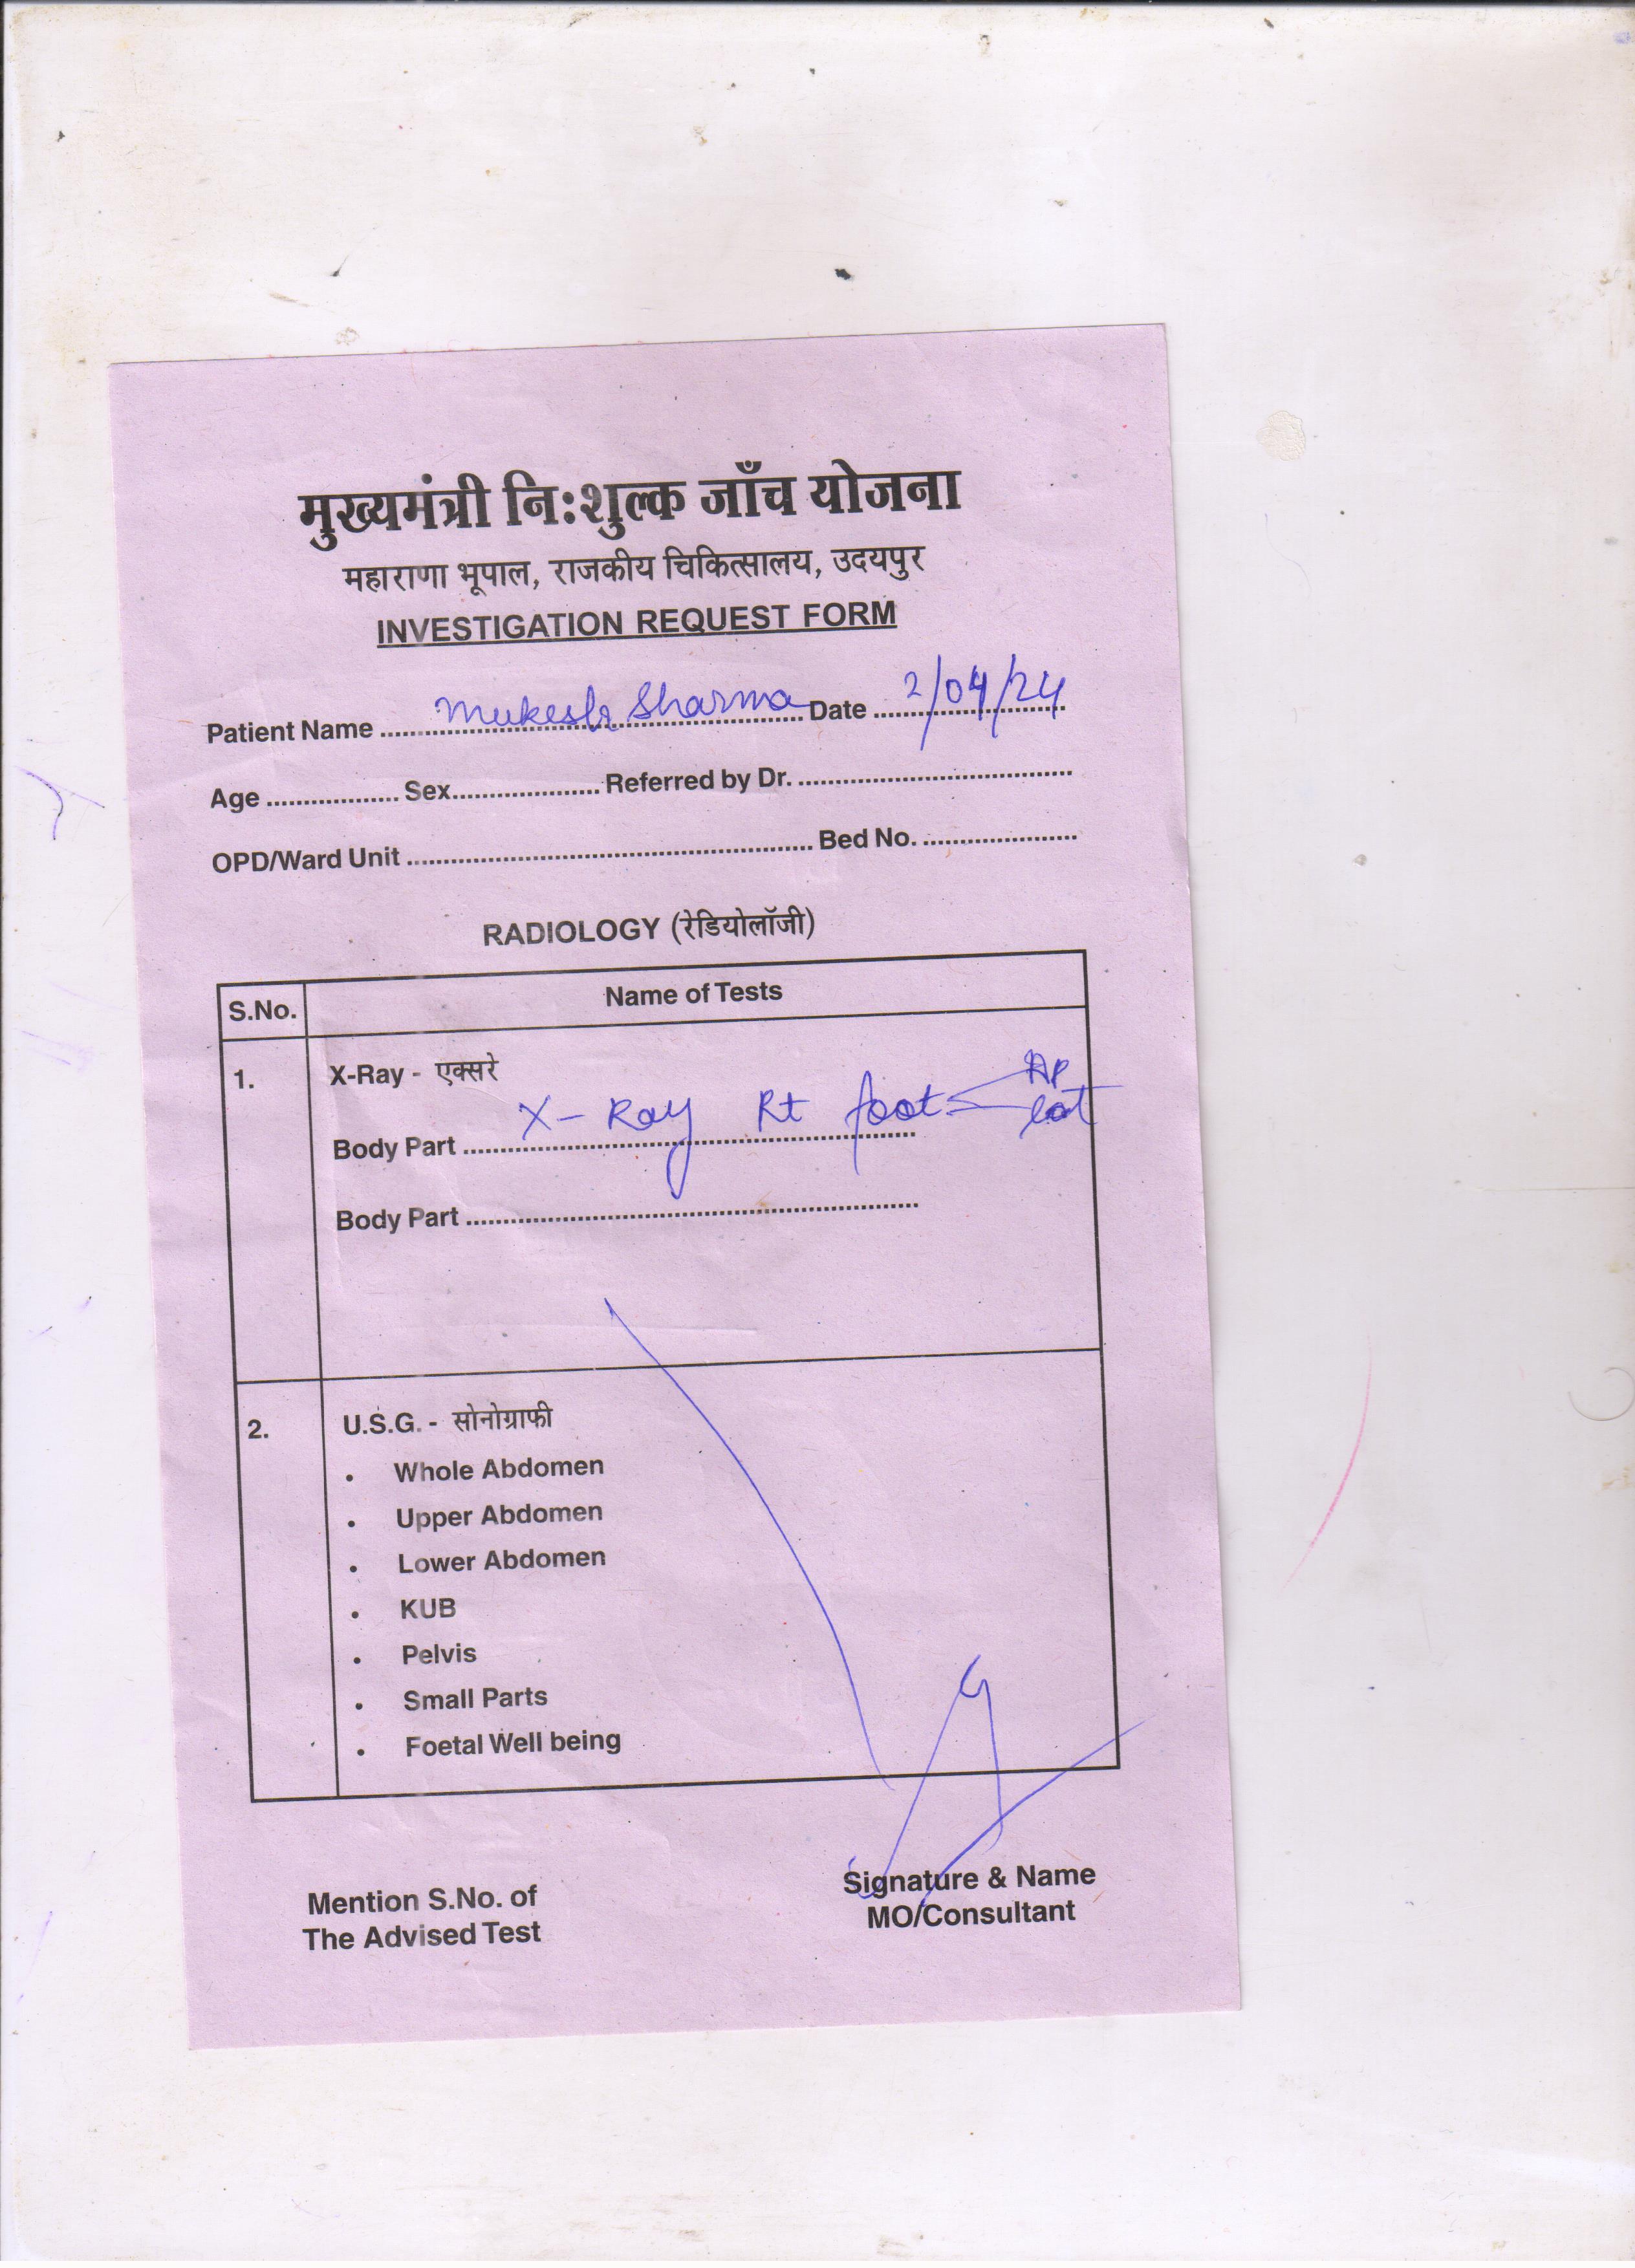 मुख्यमंत्री नि:शुल्क जाँच योजना
महाराणा भूपाल, राजकीय चिकित्सालय, उदयपुर
INVESTIGATION REQUEST FORM
Patient Name ........ Mukesh Sharma ........ Date ........ 2/04/24 ........
Age .................. Sex.................... Referred by Dr. .....................................
OPD/Ward Unit ....................................................... Bed No. .....................
RADIOLOGY (रेडियोलॉजी)
S.No. Name of Tests
1. X-Ray - एक्सरे
Body Part ........ X-Ray Rt foot AP
lat
Body Part .............................................................
2. U.S.G. - सोनोग्राफी
• Whole Abdomen
• Upper Abdomen
• Lower Abdomen
• KUB
• Pelvis
• Small Parts
• Foetal Well being
Mention S.No. of
The Advised Test
Signature & Name
MO/Consultant